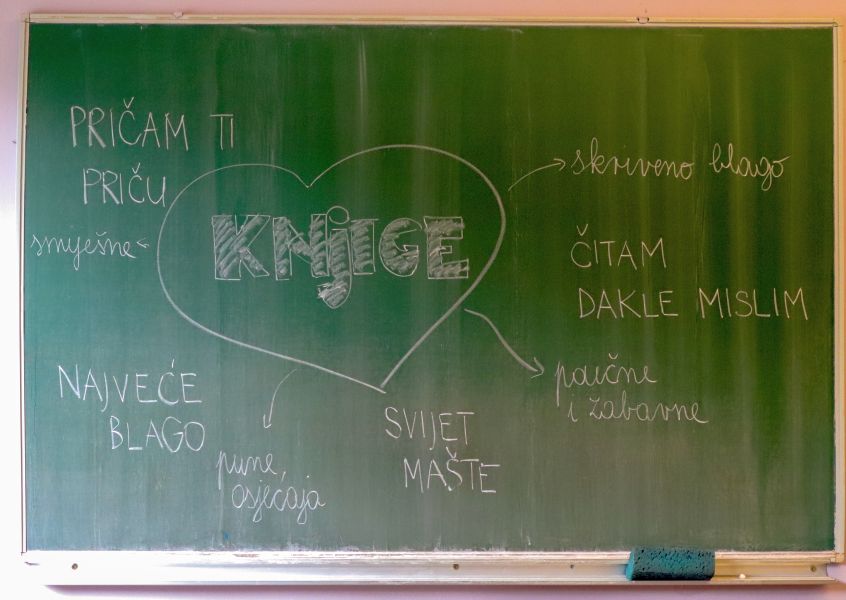 PRIČAM TI
PRIČU
smješne
KNjIGE
skriveno blago
ČITAM
DAKLE MISLIM
poučne
i zabavne
NAJVEĆE
BLAGO
pune,
osjećaja
SVIJET
MAŠTE